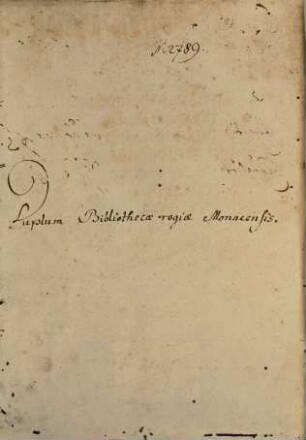 N. 2789.
Duplum Bibliothecæ regiæ Monacensis.